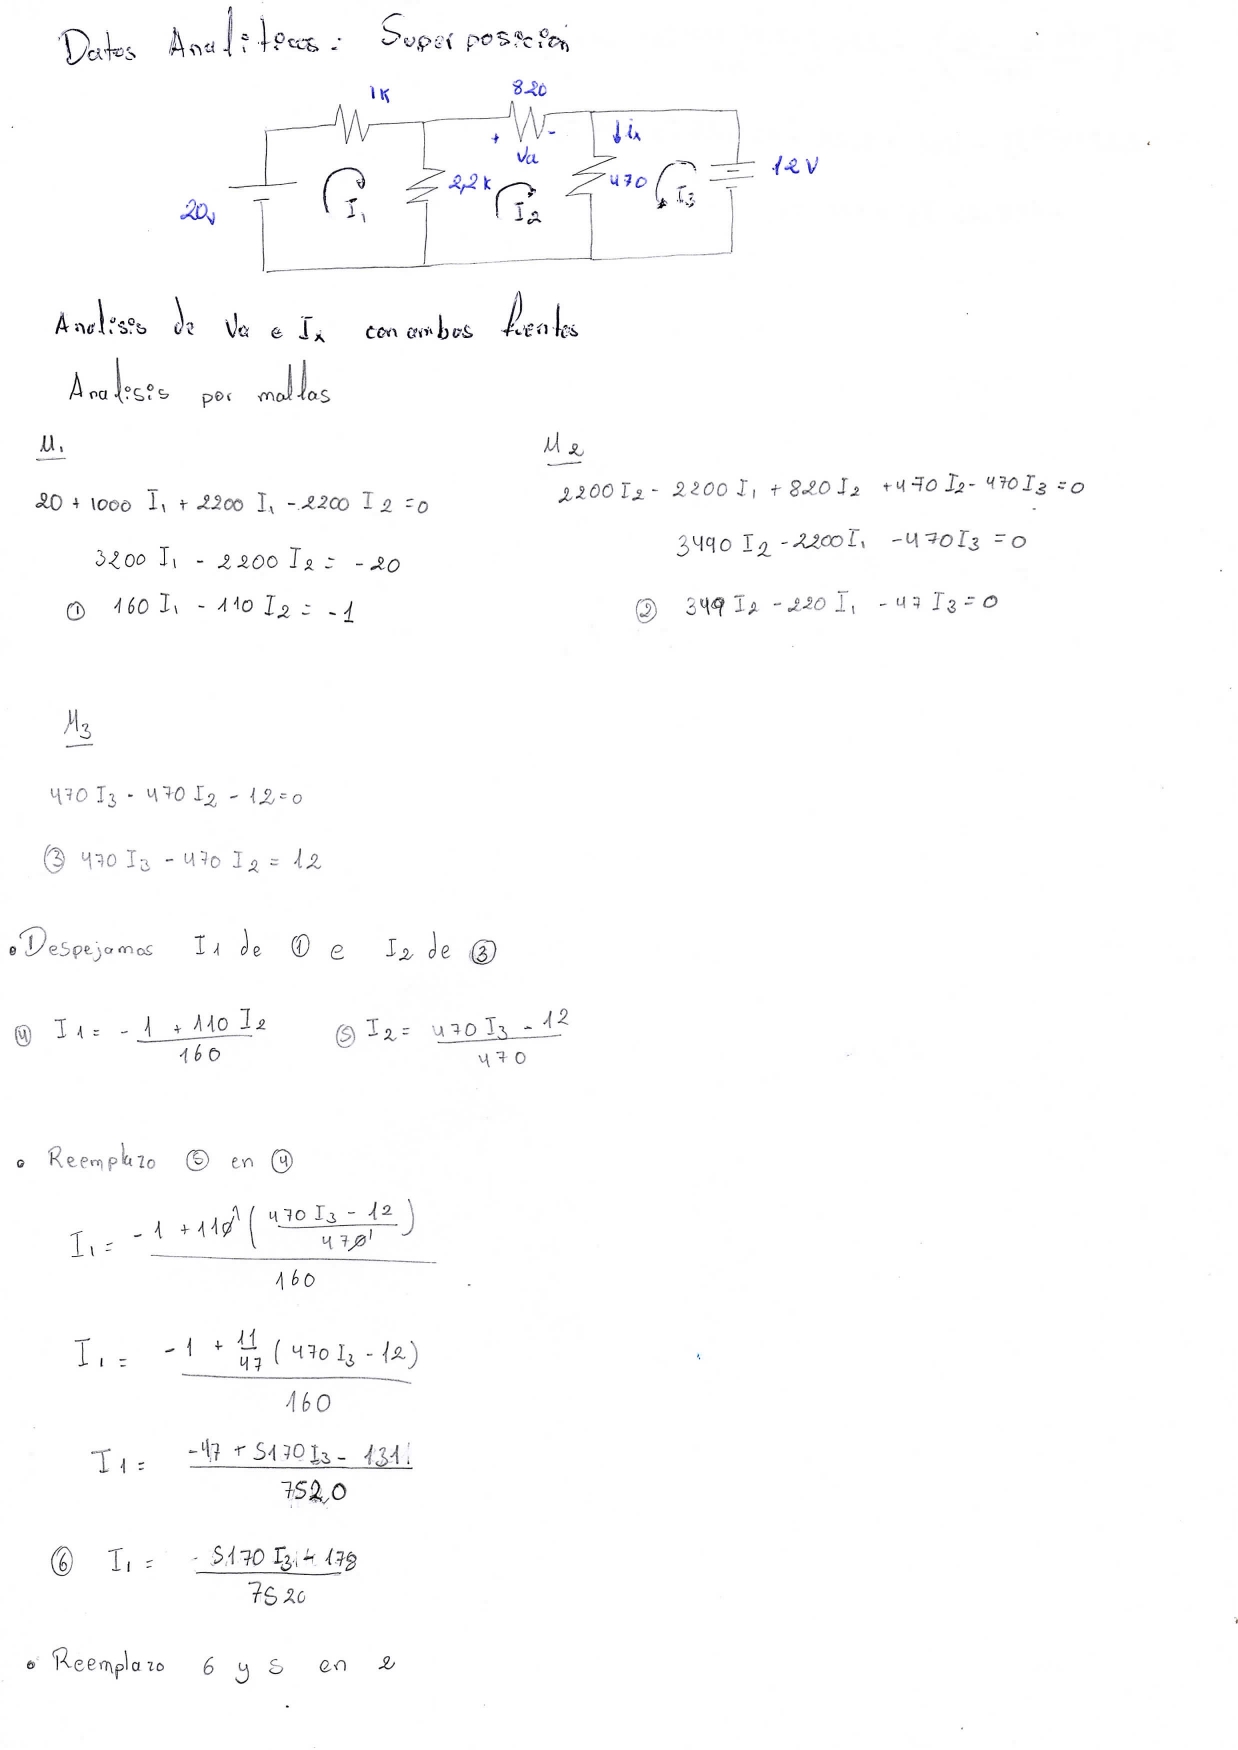 Datos Analiticos: Superposición
1K
820
+ Va -
↓ix
20v
I₁
2,2K
I2
470
I3
12V
Analisis de Va e Ix con ambas fuentes
Analisis por mallas
M₁
20 + 1000 I₁ + 2200 I₁ - 2200 I2 = 0
3200 I₁ - 2200 I2 = -20
① 160 I₁ - 110 I2 = -1
M2
2200 I2 - 2200 I₁ + 820 I2 + 470 I2 - 470 I3 = 0
3490 I2 - 2200 I₁ - 470 I3 = 0
② 349 I2 - 220 I₁ - 47 I3 = 0
M3
470 I3 - 470 I2 - 12 = 0
③ 470 I3 - 470 I2 = 12
• Despejamos I1 de ① e I2 de ③
④ I1 = -1 + 110 I2 / 160 ⑤ I2 = 470 I3 - 12 / 470
• Reemplazo ⑤ en ④
I₁ = -1 + 110 ( 470 I3 - 12 / 470 ) / 160
I₁ = -1 + 11/47 ( 470 I3 - 12 ) / 160
I1 = -47 + 5170 I3 - 131 / 7520
⑥ I₁ = - 5170 I3 + 178 / 7520
• Reemplazo 6 y 5 en 2